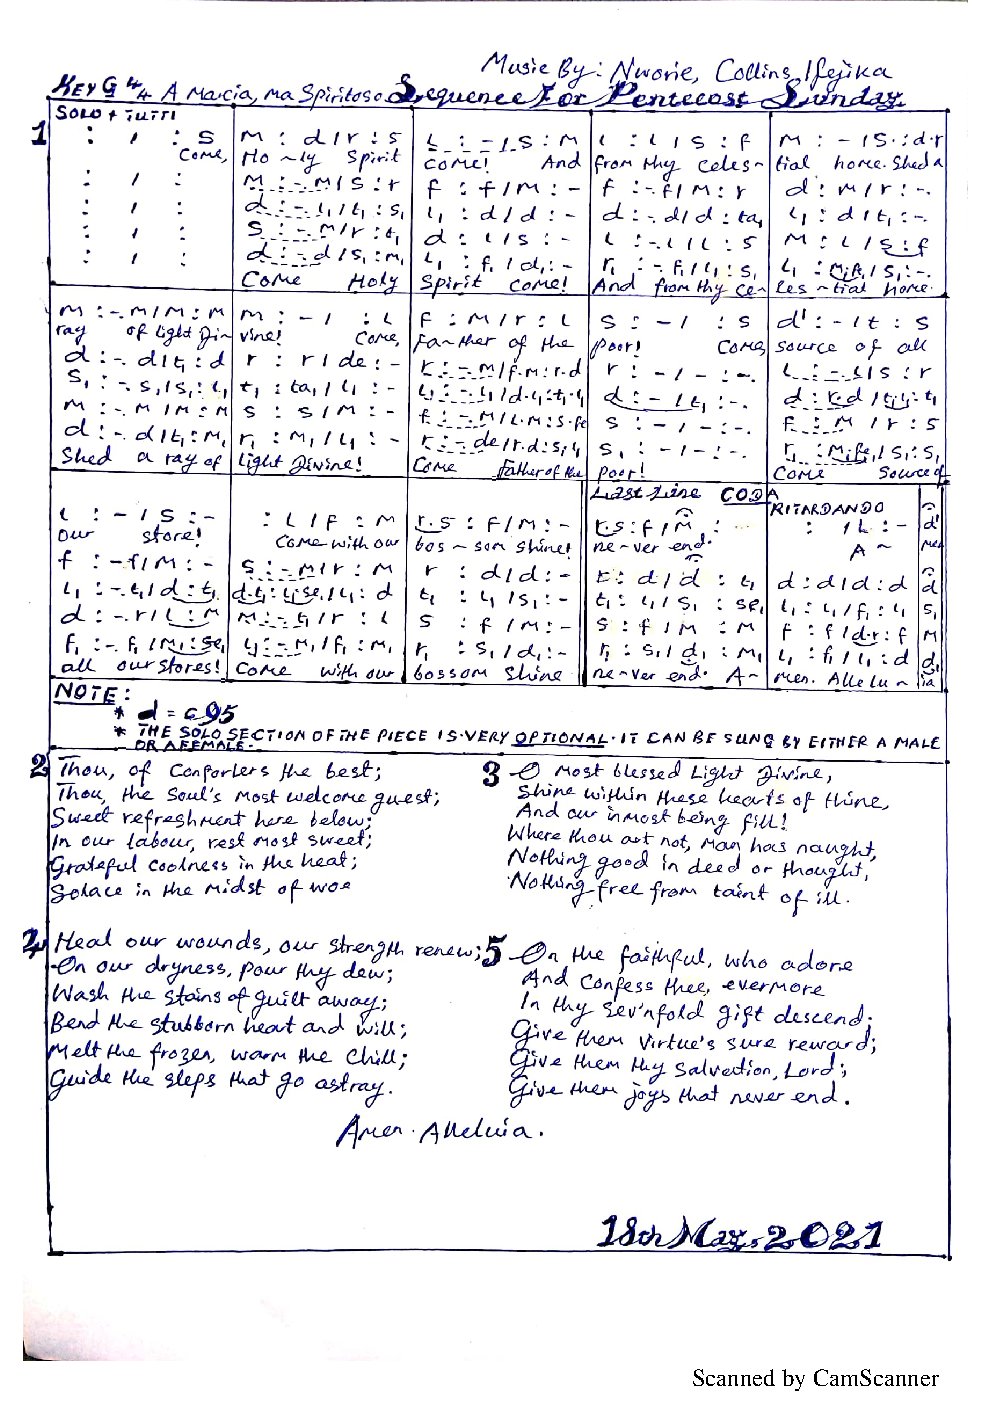 Music By: Nworie, Collins Ifejika
KEY G 4/4 A Marcia, ma Spiritoso. Sequence For Pentecost Sunday
SOLO + TUTTI
1
: / : S | M : d / r : S | L : - / S : M | L : L / S : f | M : - / S . : d . r
Come, | Ho ~ ly Spirit | Come! And | from thy celes ~ | tial home. Shed a
: / : | M : - . M / S : r | f : f / M : - | f : - . f / M : r | d : M / r : - .
: / : | d : - . l₁ / t₁ : S₁ | l₁ : d / d : - | d : - . d / d : ta₁ | l₁ : d / t₁ : - .
: / : | S : - . M / r : t₁ | d : L / S : - | L : - . L / L : S | M : L / S : f
: / : | d : - . d / S₁ : M₁ | l₁ : f₁ / d₁ : - | r₁ : - . f₁ / l₁ : S₁ | l₁ : M₁ . fe₁ / S₁ : - .
Come Holy | Spirit Come! | And from thy Ce ~ | les ~ tial home.
M : - . M / M : M | M : - / : L | f : M / r : L | S : - / : S | d' : - / t : S
ray of light Din | vine! Come, | Fa ~ ther of the | poor! Come, | source of all
d : - . d / t₁ : d | r : r / de : - | r : - . M / f . M : r . d | r : - / - : - . | L : - . L / S : r
S₁ : - . S₁ / S₁ : l₁ | t₁ : ta₁ / l₁ : - | l₁ : - . l₁ / d . l₁ : t₁ . l₁ | d : - / t₁ : - . | d : r . d / t₁ . l₁ : t₁
M : - . M / M : M | S : S / M : - | f : - . M / L . M : S . fe | S : - / - : - . | f : M / r : S
d : - . d / t₁ : M₁ | r₁ : M₁ / l₁ : - | r : - . de / r . d : S₁ . l₁ | S₁ : - / - : - . | r₁ : M₁ . fe₁ / S₁ : S₁
Shed a ray of | light Divine! | Come Father of the | poor! | Come Source of
Last Line CODA
RITARDANDO
L : - / S : - | : L / f : M | r . S : f / M : - | r . S : f / M : | : / L : - | d'
Our store! | Come with our | bos ~ som shine! | ne ~ ver end. | A ~ | Men
f : - f / M : - | S : - . M / r : M | r : d / d : - | r : d / d : t₁ | d : d / d : d | d
l₁ : - . l₁ / d : t₁ | d . t₁ : l₁ . se₁ / l₁ : d | t₁ : l₁ / S₁ : - | t₁ : l₁ / S₁ : se₁ | l₁ : l₁ / f₁ : l₁ | S₁
d : - . r / L : M | M : - . t₁ / r : L | S : f / M : - | S : f / M : M | f : f / d . r : f | M
f₁ : - . f₁ / M₁ : se₁ | l₁ : - . M₁ / f₁ : M₁ | r₁ : S₁ / d₁ : - | r₁ : S₁ / d₁ : M₁ | l₁ : f₁ / l₁ : d | d₁
all our stores! | Come with our | bossom shine | ne ~ ver end. A ~ | Men. Allelu ~ | ia
NOTE:
* d = c 95
* THE SOLO SECTION OF THE PIECE IS VERY OPTIONAL. IT CAN BE SUNG BY EITHER A MALE
OR A FEMALE.
2 Thou, of Conforters the best;
Thou, the Soul's most welcome guest;
Sweet refreshment here below;
In our labour, rest most sweet;
Grateful coolness in the heat;
Solace in the midst of woe
3 O Most blessed Light Divine,
Shine within these hearts of thine,
And our inmost being fill!
Where thou art not, man has naught,
Nothing good in deed or thought,
Nothing free from taint of ill.
4 Heal our wounds, our strength renew;
On our dryness, pour thy dew;
Wash the stains of guilt away;
Bend the stubborn heart and will;
Melt the frozen, warm the chill;
Guide the steps that go astray.
5 On the faithful, who adore
And Confess thee, evermore
In thy sev'nfold gift descend;
Give them Virtue's sure reward;
Give them thy Salvation, Lord;
Give them joys that never end.
Amen. Alleluia.
18th May, 2021
Scanned by CamScanner